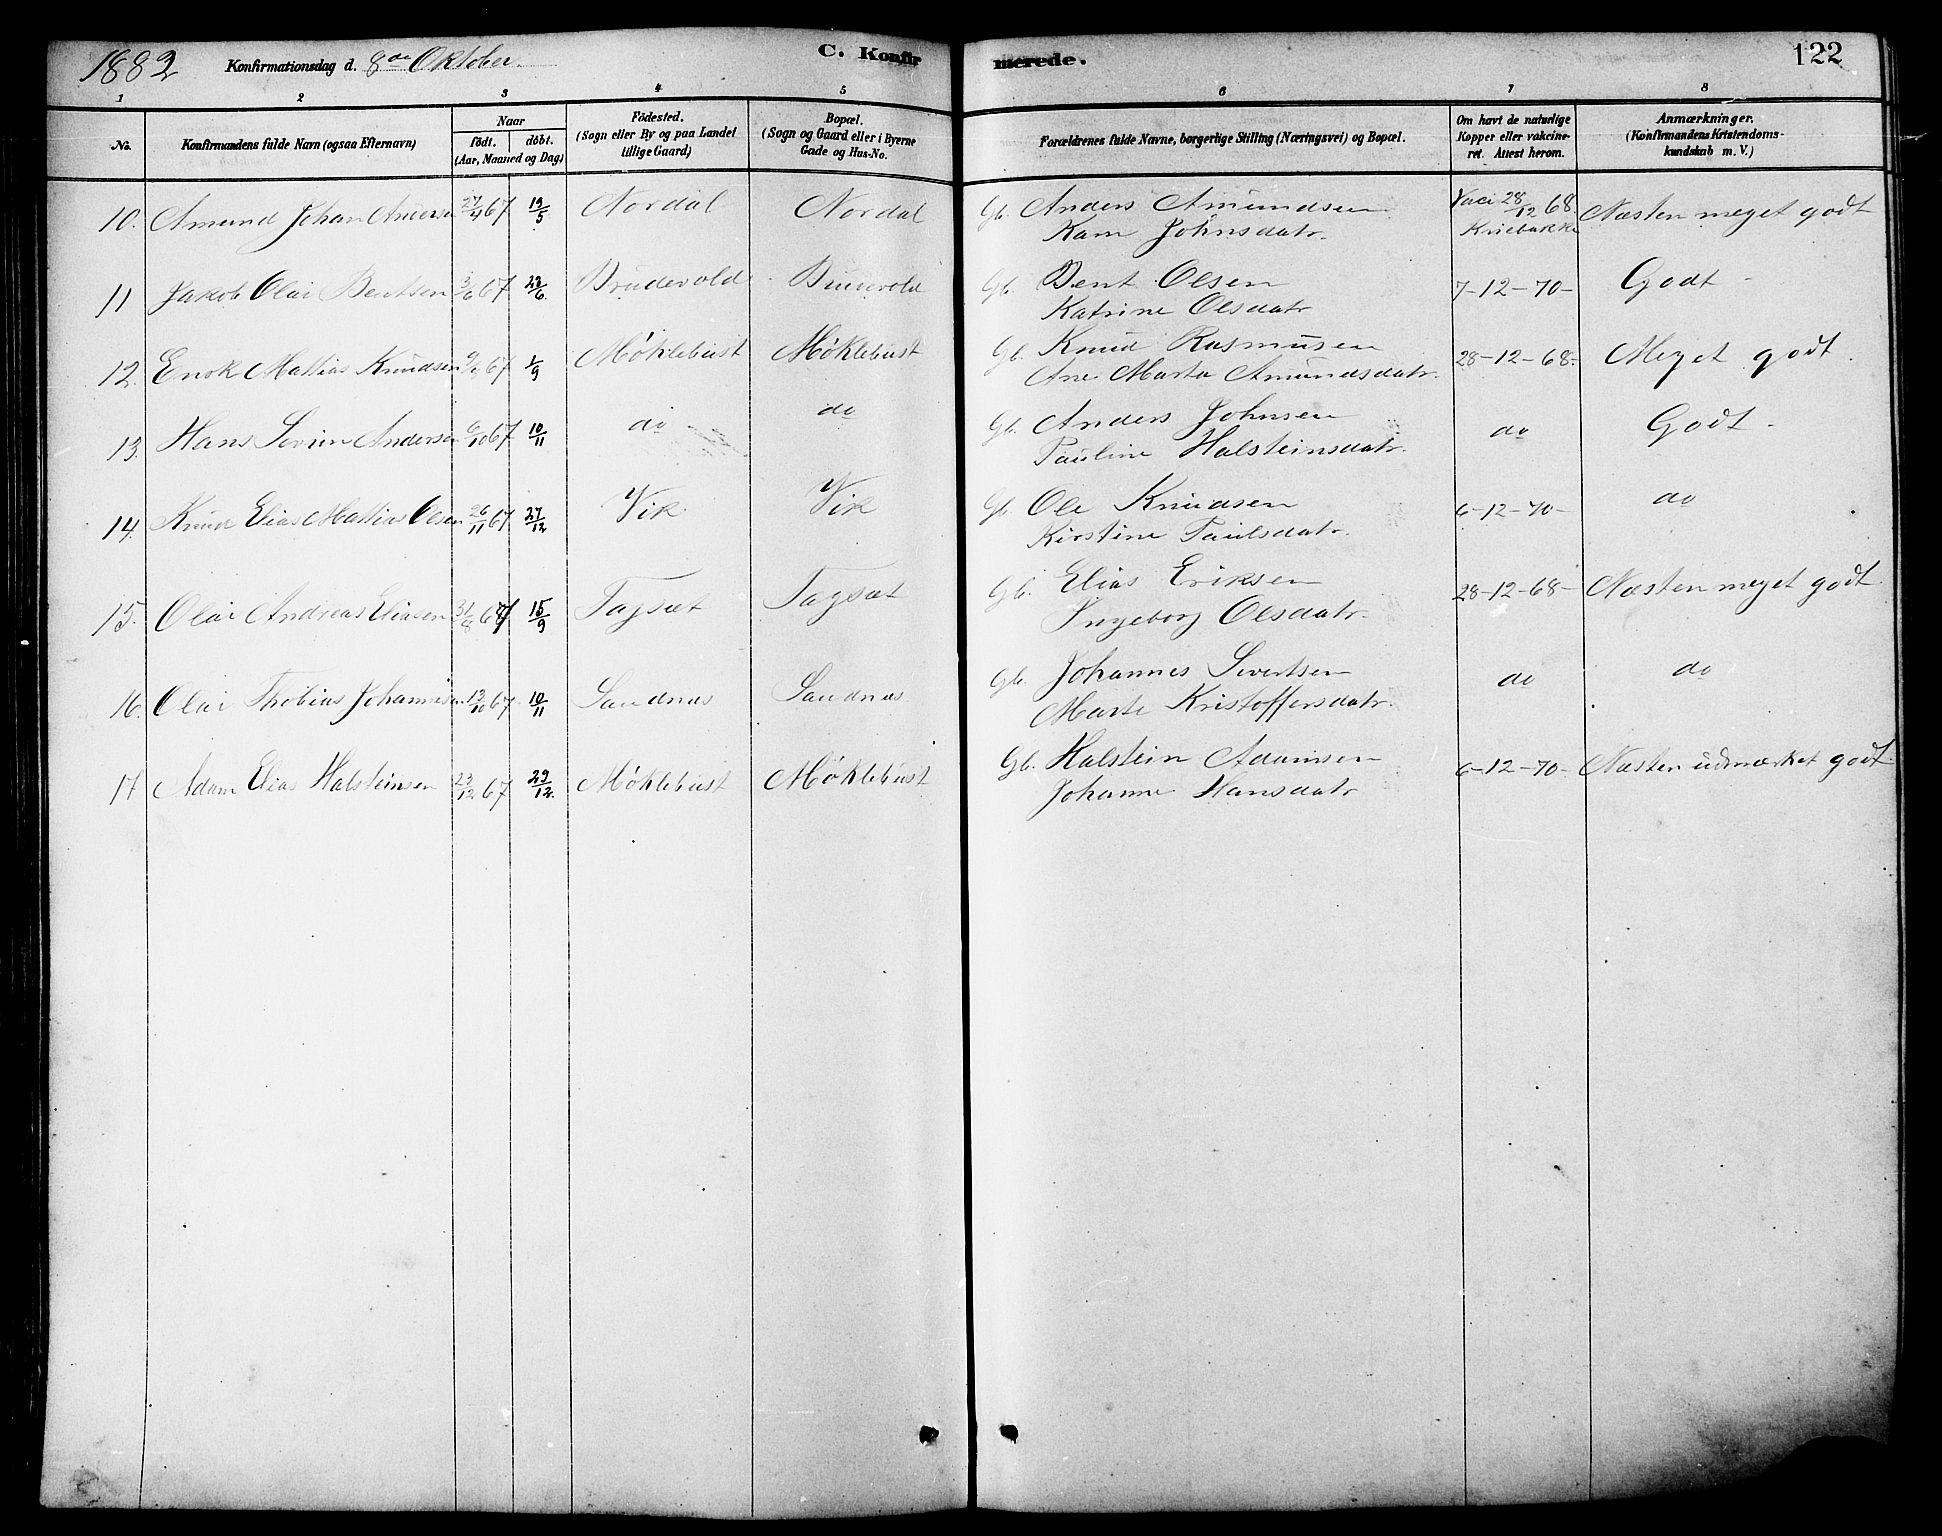 1882
Konfirmationsdag d. 8de Oktober.
C. Konfirmerede.
122
1 2 3 4 5 6 7 8
No.
Konfirmandens fulde Navn (ogsaa Efternavn)
Naar
födt. döbt.
(Aar, Maaned og Dag)
Födested.
(Sogn eller By og paa Landet
tillige Gaard)
Bopæl.
(Sogn og Gaard eller i Byerne
Gade og Hus-No.
Forældrenes fulde Navne, borgerlige Stilling (Næringsvei) og Bopæl.
Om havt de naturlige
Kopper eller vakcine-
ret. Attest herom.
Anmærkninger.
(Konfirmandens Kristendoms-
kundskab m. V.)
10. Amund Johan Andersen 27/4 67 19/5 Nordal Nordal Gb. Anders Amundsen Vaci 28/12 68. Næsten meget godt
Karn Johnsdatr.
11 Jakob Olai Bentsen 3/6 67 23/6. Brudevold Brudevold Gb. Bent Olsen 7-12-70- Godt -
Katrine Olsdatr
12. Enok Mattias Knudsen 67 1/9 Møklebust Møklebust Gb. Knud Rasmusen 28-12-68- Meget godt.
Ane Marta Amundsdatr.
13. Hans Severin Andersen 6/10 67. 10/11 do do Gb. Anders Johnsen do Godt -
Pauline Halsteinsdatr.
14. Knud Elias Mattias Olsen 26/11 67. 27/12 Vik Vik Gb. Ole Knudsen 6-12-70- do
Kirstine Paulsdatr.
15. Olai Andreas Eliasen 31/8 67 15/9 Tagsæt Tagsæt Gb. Elias Eriksen 28-12-68- Næsten meget godt
Ingeborg Olsdatr.
16. Olai Thobias Johannesen 13/10 67 10/11 Sandnæs Sandnæs Gb. Johannes Sivertsen do do
Marte Kristoffersdatr.
17. Adam Elias Halsteinsen 23/12 67 29/12. Møklebust Møklebust Gb. Halstein Adamsen 6-12-70- Næsten udmærket godt.
Johanne Hansdatr